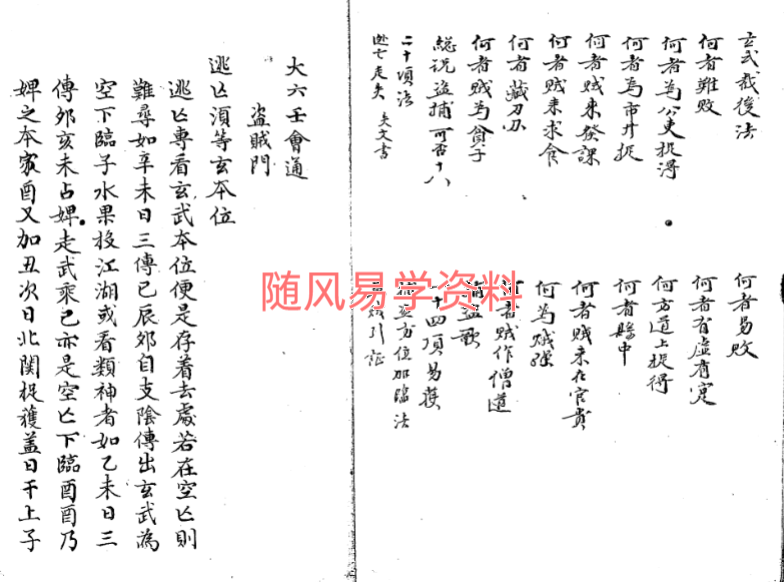 玄武截後法
何者難敗
何者為公吏捉得
何者為市井捉
何者賊来發課
何者賊来求食
何者藏刀
何者賊為貧子
総说盗捕可否十八
二十項法
何者易敗
何者有虛有寔
何方道上捉得
何者賂中
何者賊来在官貴
何為賊强
何者賊作僧道
十四項易獲
方位加臨法
引証
随风易学资料
大六壬會通
盜賊門
逃亡須等玄本位
逃亡專看玄武本位便是存着去處若在空亡則
難尋如辛未日三傳巳辰夘自支陰傳出玄武為
空下臨子水果投江湖或看類神者如乙未日三
傳夘亥未占婢走武乘巳亦是空亡下臨酉酉乃
婢之本家酉又加丑次日北関捉獲盖日干上子